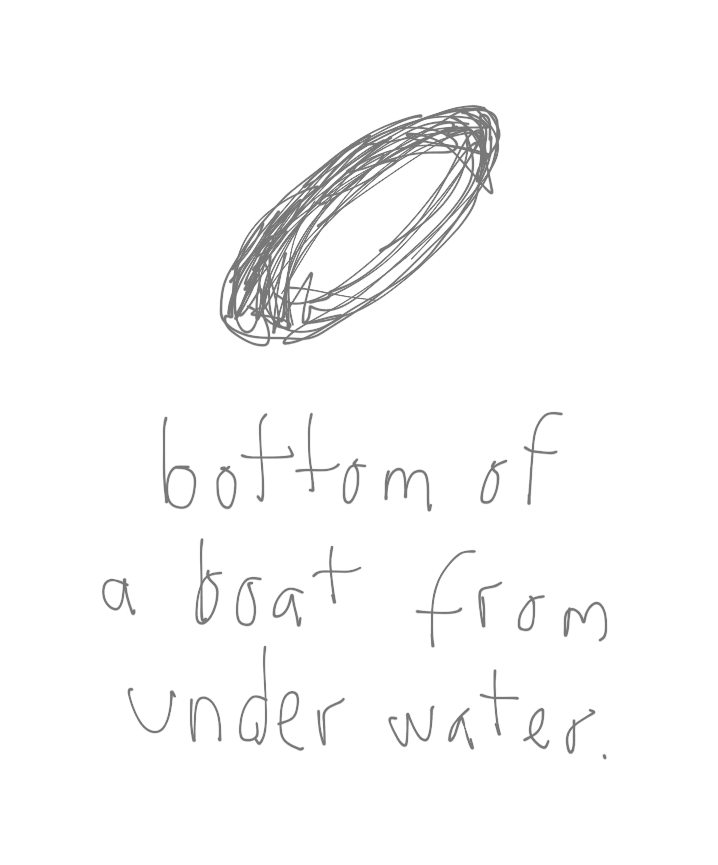 bottom of
a boat from
under water.